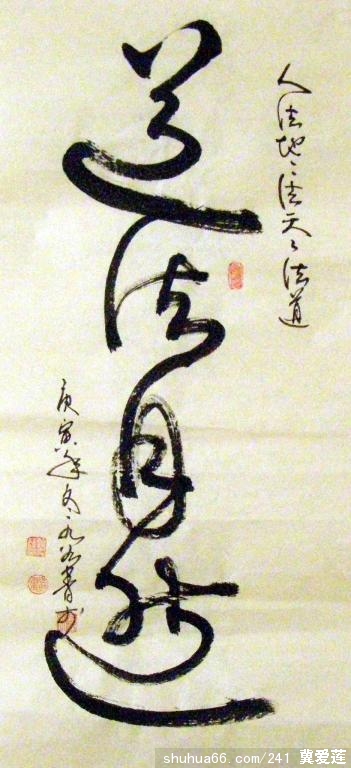 人法地々法天々法道
道法自然
庚寅年冬
shuhua66.com/241 冀爱莲